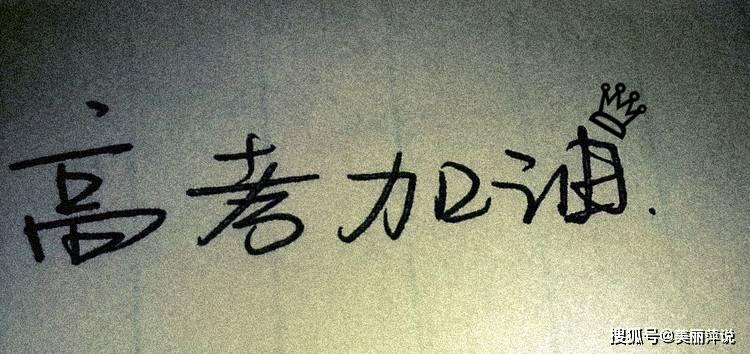 高考加油.
搜狐号@美丽萍说